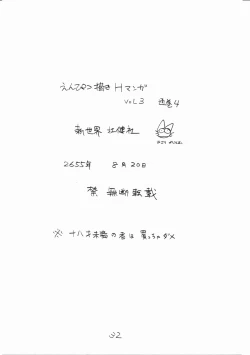 えんぴつ描き Hマンガ
VOL3 通巻4
新世界 社
2655年 8月20日
禁 無断転載
※ 十八才未満の者は 買っちゃダメ
32